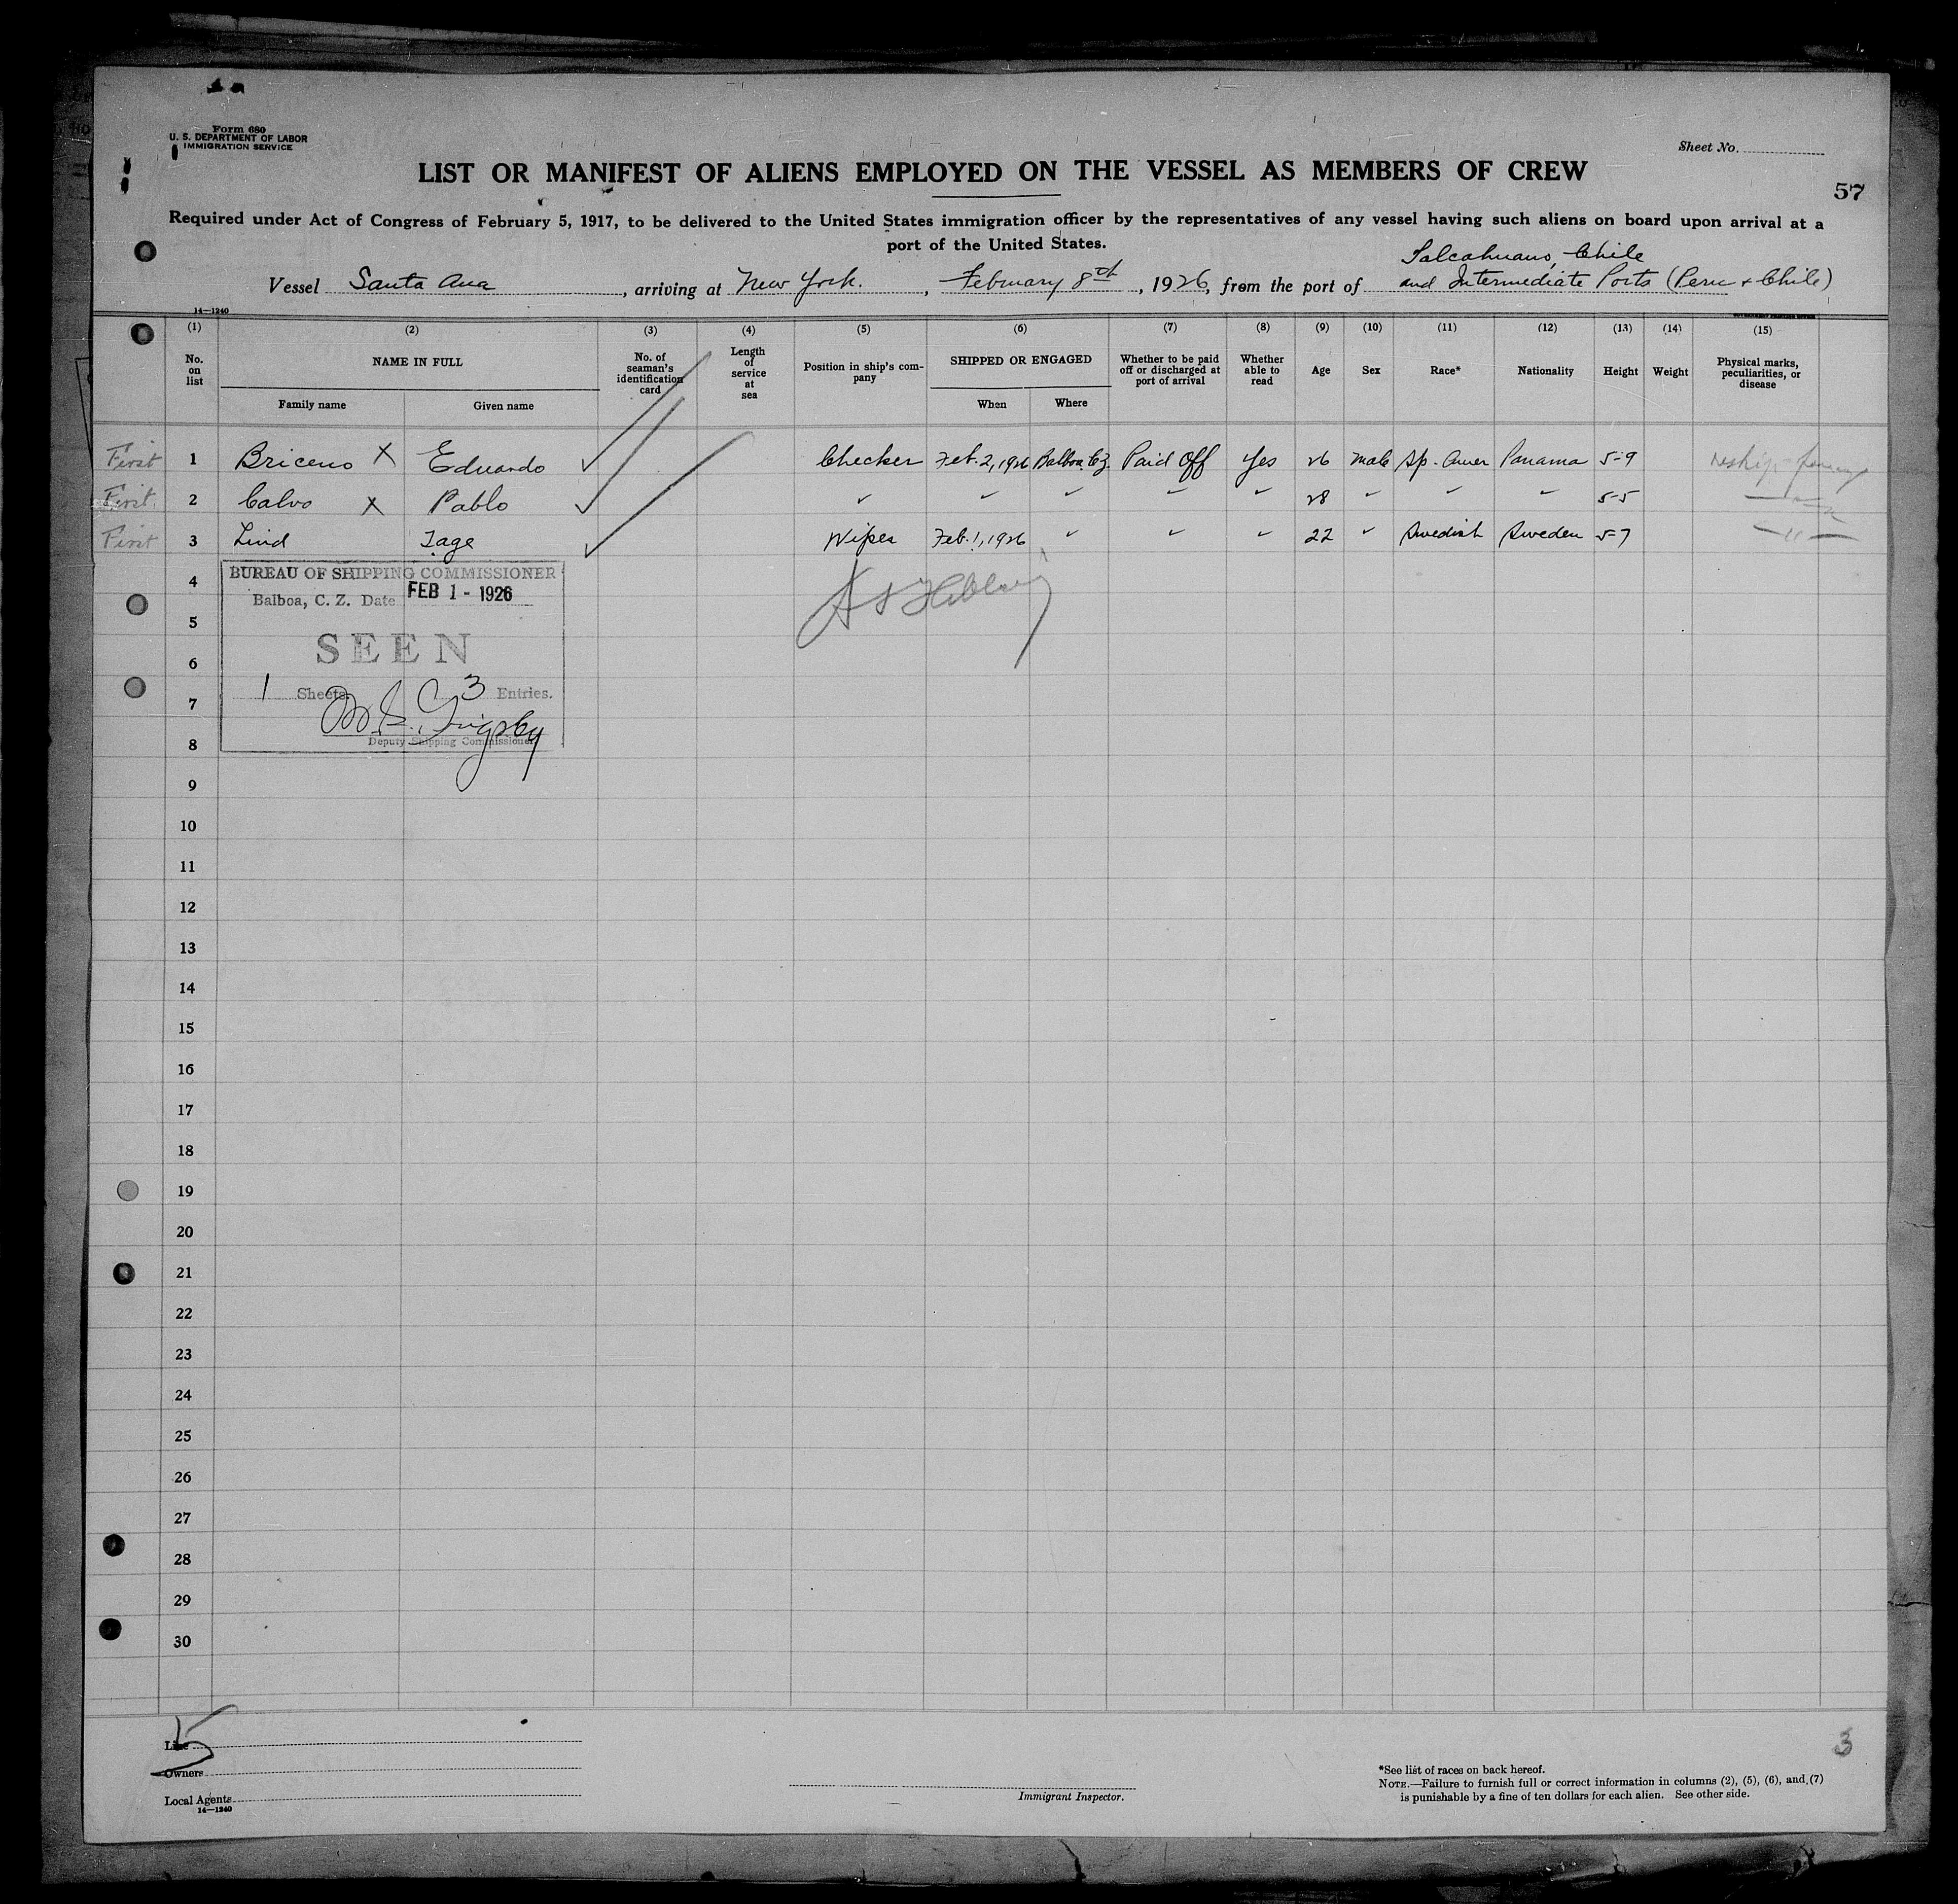 Form 680
U. S. DEPARTMENT OF LABOR
IMMIGRATION SERVICE
Sheet No.
LIST OR MANIFEST OF ALIENS EMPLOYED ON THE VESSEL AS MEMBERS OF CREW
57
Required under Act of Congress of February 5, 1917, to be delivered to the United States immigration officer by the representatives of any vessel having such aliens on board upon arrival at a
port of the United States.
Talcahuano, Chile
Vessel Santa Ana, arriving at New York., February 8th, 1926, from the port of and Intermediate Ports (Peru + Chile)
14—1240
(1) (2) (3) (4) (5) (6) (7) (8) (9) (10) (11) (12) (13) (14) (15)
No. on list NAME IN FULL No. of seaman's identification card Length of service at sea Position in ship's company SHIPPED OR ENGAGED Whether to be paid off or discharged at port of arrival Whether able to read Age Sex Race* Nationality Height Weight Physical marks, peculiarities, or disease
Family name Given name When Where
First 1 Briceno X Eduardo ✓ Checker Feb. 2, 1926 Balboa C.Z. Paid Off Yes 26 Male Sp. Amer Panama 5-9
First 2 Calvo X Pablo ✓ " " " " " 28 " " " 5-5 — " —
First 3 Lind Tage ✓ Wiper Feb. 1, 1926 " " " 22 " Swedish Sweden 5-7 — " —
BUREAU OF SHIPPING COMMISSIONER
4
Balboa, C. Z. Date FEB 1 - 1926
5
SEEN
6
1 Sheets 3 Entries.
7
M. S. Grigsby
Deputy Shipping Commissioner
8
9
10
11
12
13
14
15
16
17
18
19
20
21
22
23
24
25
26
27
28
29
30
5
Line
Owners
Local Agents
14—1240
Immigrant Inspector.
3
*See list of races on back hereof.
NOTE.—Failure to furnish full or correct information in columns (2), (5), (6), and (7)
is punishable by a fine of ten dollars for each alien. See other side.